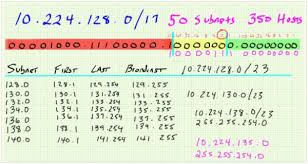 10.224.128.0/17 50 Subnets 350 Hosts
Subnet First Last Broadcast 10.224.128.0/23
128.0 128.1 129.254 129.255
130.0 130.1 131.254 131.255 10.224.130.0/23
132.0 132.1 133.254 133.255
134.0 134.1 135.254 135.255 10.224.138.0/23
136.0 136.1 137.254 137.255 255.255.254.0
138.0 138.1 139.254 139.255
140.0 140.1 141.254 141.255 10.224.135.0
255.255.254.0